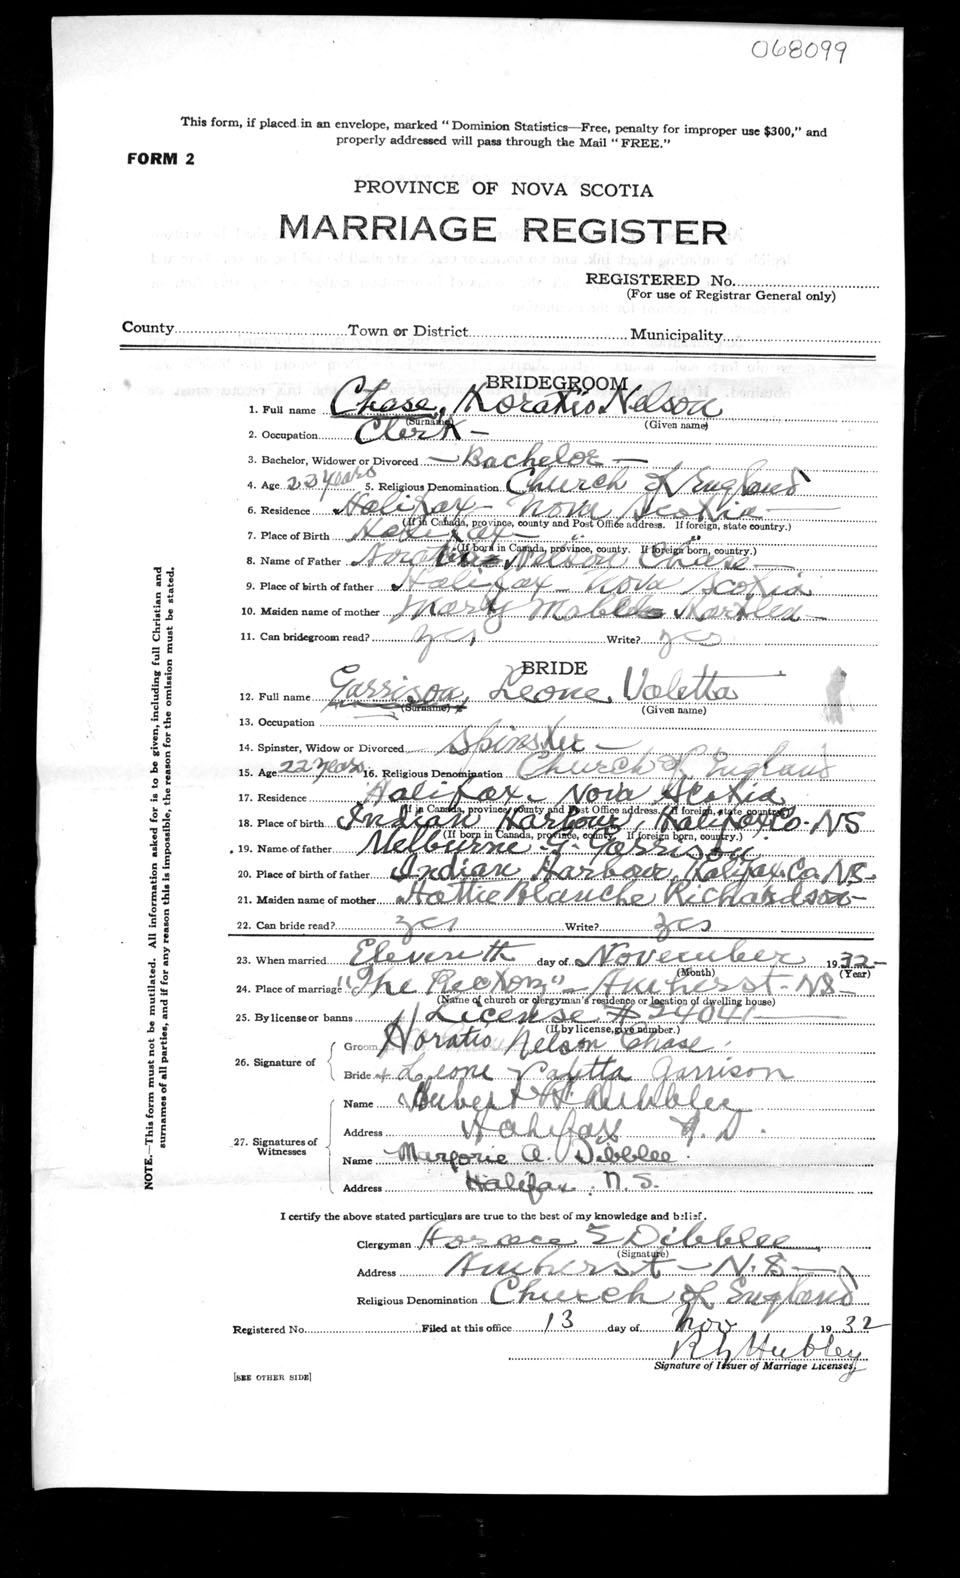 068099
This form, if placed in an envelope, marked "Dominion Statistics—Free, penalty for improper use $300," and
properly addressed will pass through the Mail "FREE."
FORM 2
PROVINCE OF NOVA SCOTIA
MARRIAGE REGISTER
REGISTERED No.
(For use of Registrar General only)
County Town or District Municipality
BRIDEGROOM
1. Full name Chase, Horatio Nelson
(Surname) (Given name)
2. Occupation Clerk —
3. Bachelor, Widower or Divorced — Bachelor —
4. Age 23 years 5. Religious Denomination Church of England
6. Residence Halifax — Nova Scotia —
(If in Canada, province, county and Post Office address. If foreign, state country.)
7. Place of Birth Halifax — " "
(If born in Canada, province, county. If foreign born, country.)
8. Name of Father Horatio Nelson Chase —
9. Place of birth of father Halifax — Nova Scotia
10. Maiden name of mother Mary Mable
11. Can bridegroom read? yes Write? yes
BRIDE
12. Full name Garrison, Leone Valetta
(Surname) (Given name)
13. Occupation
14. Spinster, Widow or Divorced Spinster —
15. Age 22 years 16. Religious Denomination Church of England
17. Residence Halifax, Nova Scotia
(If in Canada, province, county and Post Office address. If foreign, state country.)
18. Place of birth Indian Harbour, Halifax Co. NS
(If born in Canada, province, county. If foreign born, country.)
19. Name of father Melbourne G. Garrison
20. Place of birth of father Indian Harbour, Halifax Co. N.S.
21. Maiden name of mother Hattie Blanche Richardson —
22. Can bride read? yes Write? yes
23. When married Eleventh day of November 1932 —
(Month) (Year)
24. Place of marriage "The Rectory" — Amherst — NS —
(Name of church or clergyman's residence or location of dwelling house)
25. By license or banns License # 24041
(If by license, give number.)
26. Signature of
Groom Horatio Nelson Chase
Bride Leone Valetta Garrison
27. Signatures of Witnesses
Name Hubert Dibblee
Address Halifax N.S.
Name Marjorie A. Dibblee.
Address Halifax, N.S.
I certify the above stated particulars are true to the best of my knowledge and belief.
Clergyman Horace E Dibblee
(Signature)
Address Amherst — N.S —
Religious Denomination Church of England
Registered No. Filed at this office 13 day of Nov 1932
Hubley
Signature of Issuer of Marriage Licenses
[SEE OTHER SIDE]
NOTE.—This form must not be mutilated. All information asked for is to be given, including full Christian and
surnames of all parties, and if for any reason this is impossible, the reason for the omission must be stated.